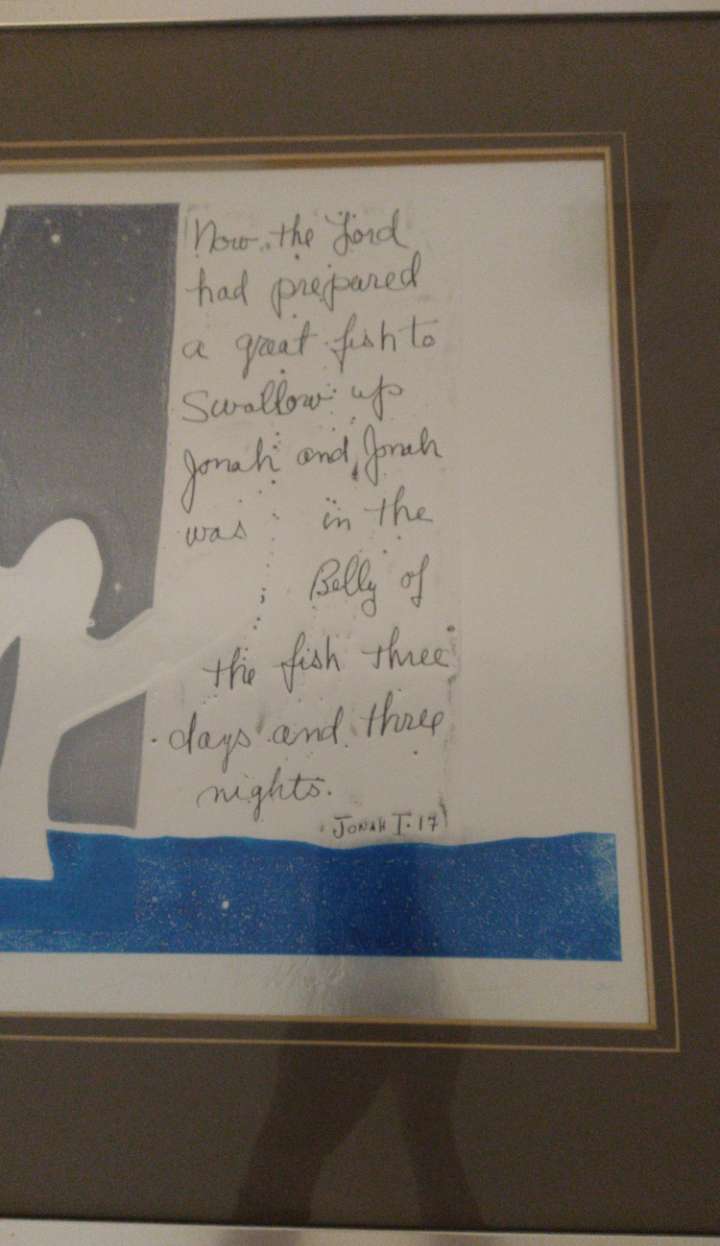 Now the Lord
had prepared
a great fish to
Swallow up
Jonah and Jonah
was in the
Belly of
the fish three
days and three
nights.
JONAH I. 17